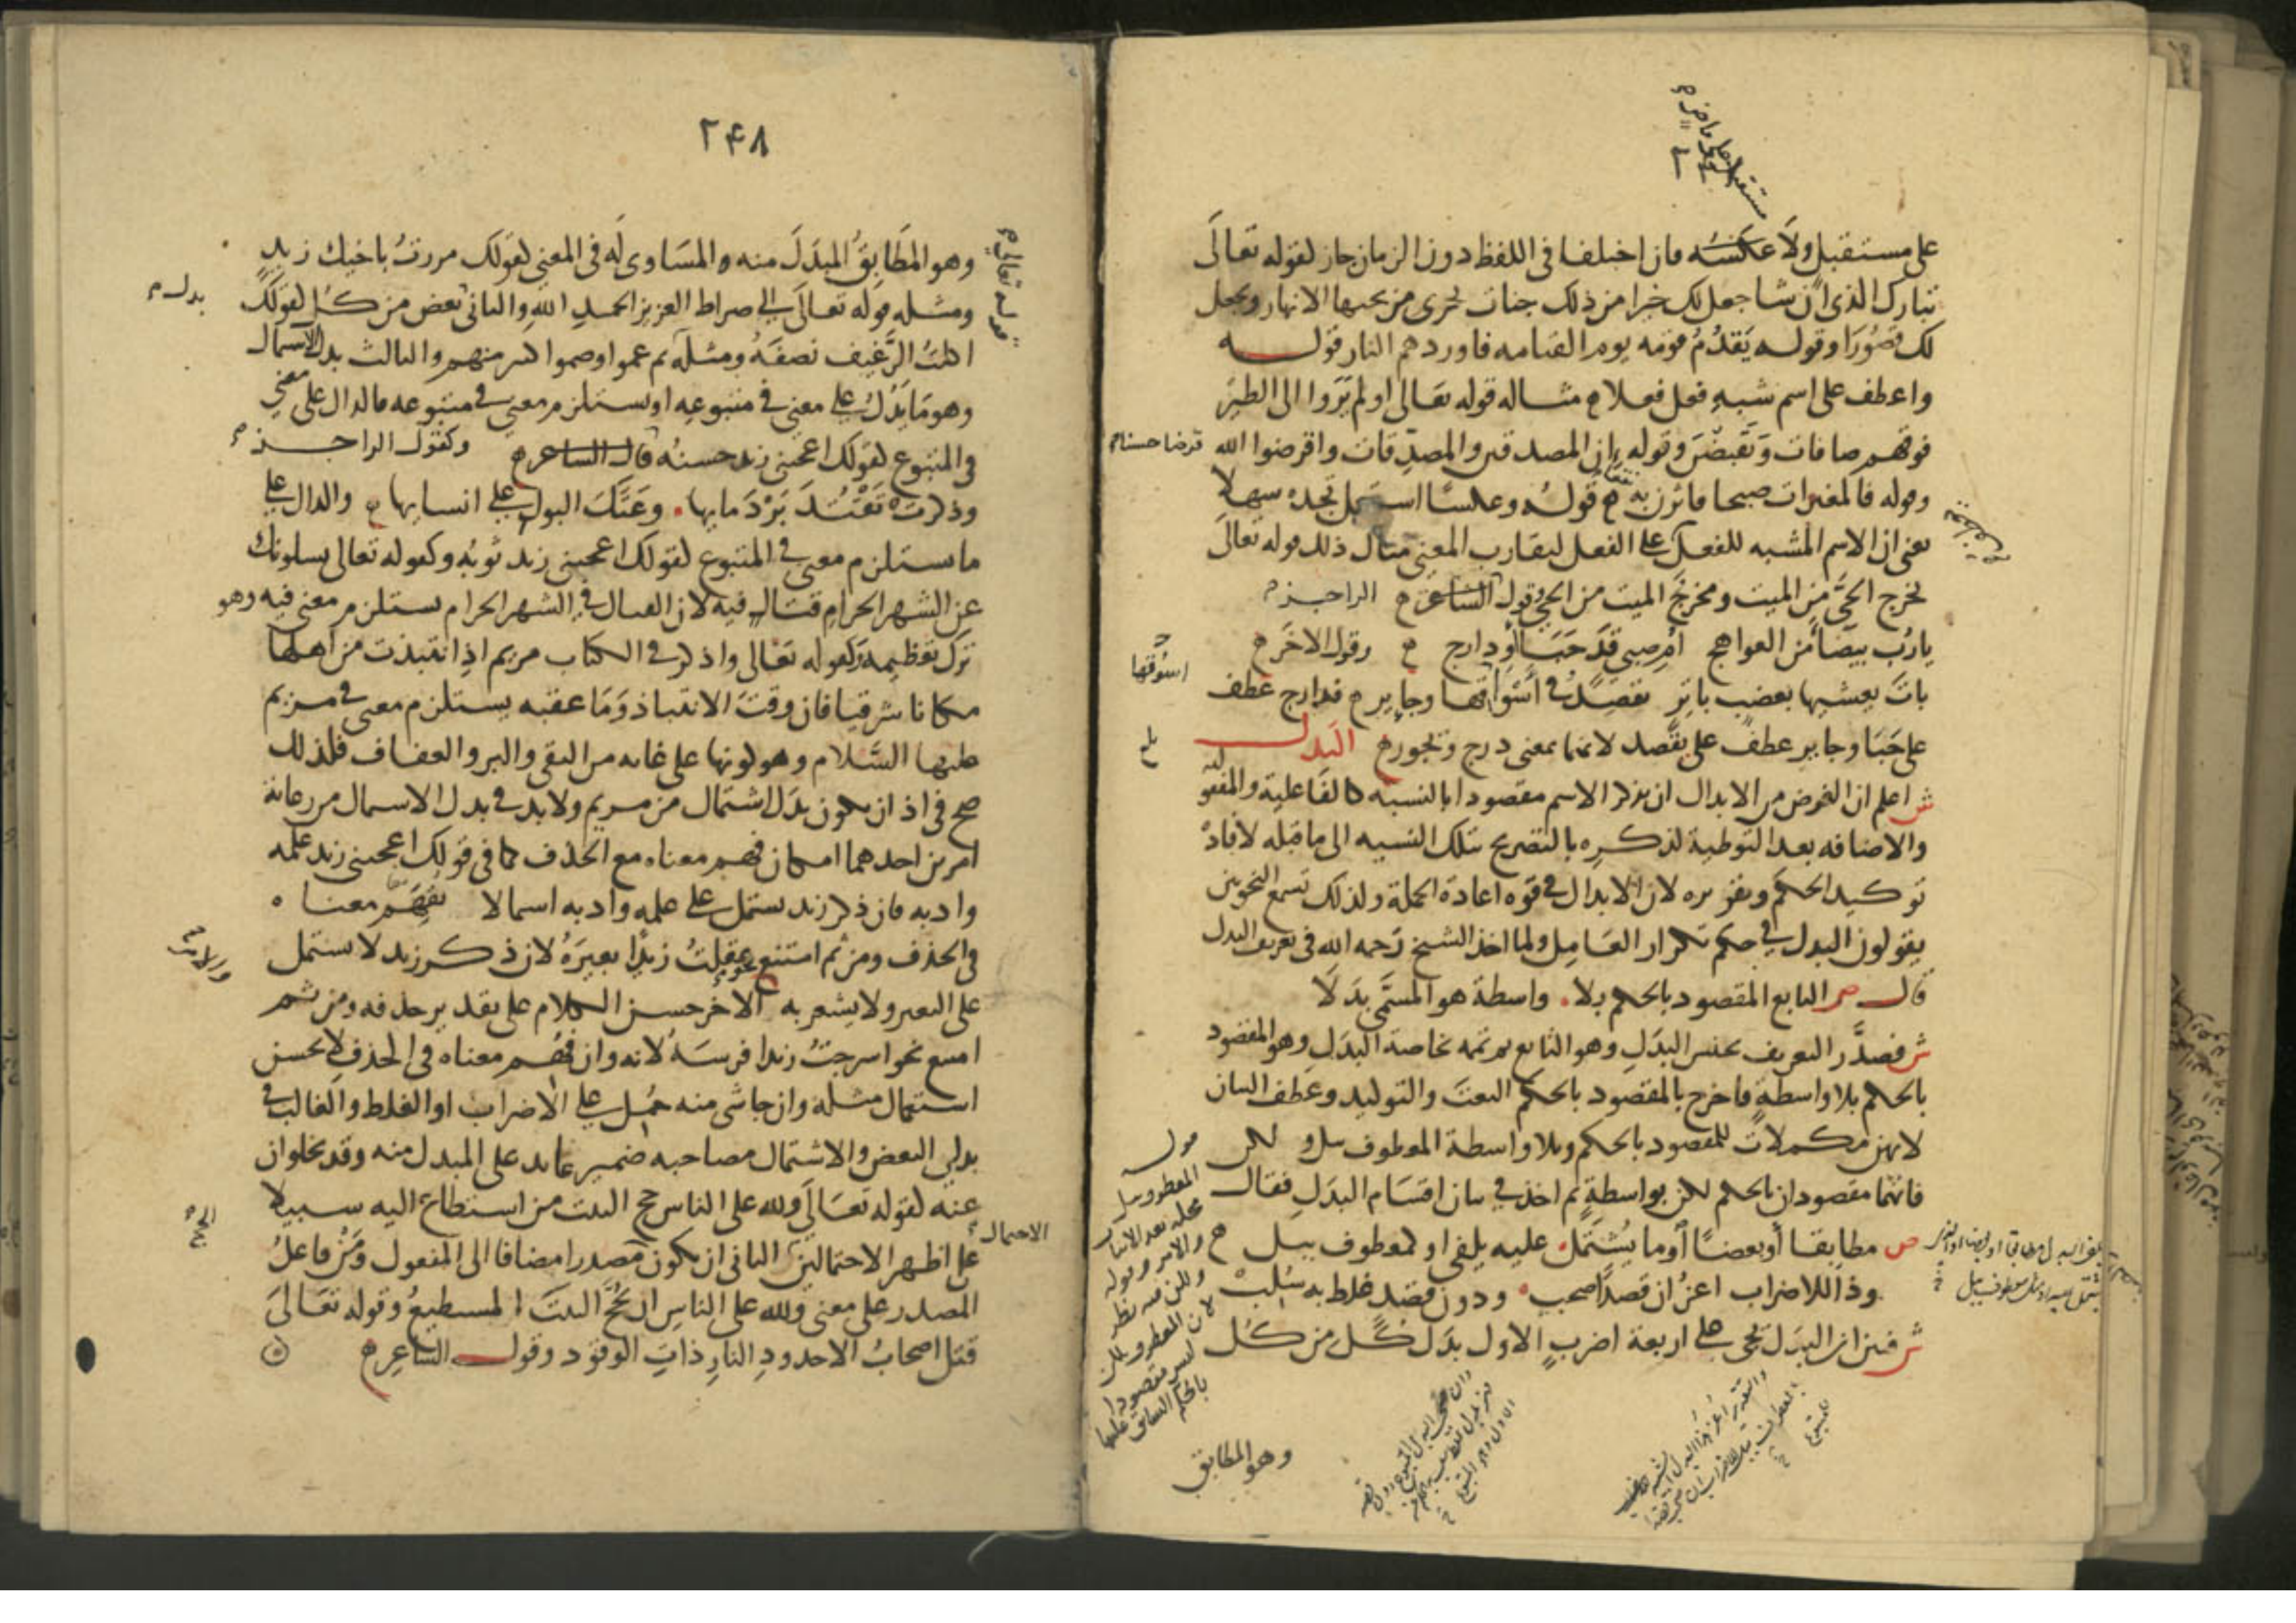 على مستقبل ولا عكسه فان اختلفا فى اللفظ دون الزمان جاز لقوله تعالَى
تبارك الذى ان شا جعل لك خيرا من ذلك جنات تجرى من تحتها الانهار ويجعل
لك قصُورَا وقوله يَقدُمُ قومه يوم القيامه فاوردهم النار قوله
واعطف على اسم شبه فعل فعلا م مثاله قوله تعالى اولم يَرَوا الى الطير
فوقهم صافات وَيَقبضْنَ وقوله ان المصدقين والمصدِّقات واقرضوا الله
قرضا حسنا م
وقوله فالمغيرات صبحا فاثرن به م قولُه وعكسًا استعمل تجده سهلا
يعنى ان الاسم المشبه للفعل على الفعل لتقارب المعنى مثال ذلك قوله تعالَى
يخرج الحيَّ من الميت ومخرجُ الميت من الحى وقول الشاعر م الراجز م
يارُب بيضا من العواهج ام صبى قدَ حَبَا او دارج م وقول الاخَر م
اسوُقها
باتَ يعشيها بعضب باتِر يقصِدُ فى اسْوُاقها وجاير م فدارج عطف
على حَبَا وجاير عطف على يقصد لانهما بمعنى درج ويجور م البَدل
ش اعلم ان الغرض من الابدال ان يذكر الاسم مقصودا بالنسبه كالفَاعلية والمفعوليه
والاضافه بعد التوطية لذكره بالتصريح بتلك النسبه الى ما قبله لافادة
توكيد الحكم وتقريره لان الابدال فى قوه اعادة الجملة ولذلك تسمع النحويين
يقولون البدل فى حكم تكرار العَامِل ولما اخذ الشيخ رَحمه الله فى تعريف البدل
قال ص التابع المقصود بالحكم بلا. واسطة هو المسَّمى بدَلَا
ش فصدَّر التعريف بجنس البدَلِ وهو التابع ثم تممه بخاصة البدَلِ وهو المقصُود
بالحكم بلا واسطةٍ فاخرج بالمقصود بالحكم النعتَ والتوكيد وعطف البيان
لانهن مكملاتٌ للمقصود بالحكم وبلا واسطة المعطوف ببل ولكن
فانهما مقصودان بالحكم لكن بواسطةٍ ثم اخذ فى بيان اقسَام البدَلِ فقال
ص مطابقا أو بعضًا أو ما يُشتَمَل. عليه يلفى او كمعطوف ببل م
وذا للاضراب اعزُ ان قصدًا صحب. ودون قصد غلط به سُلِبْ
ش فبين ان البدَل يجى على اربعة اضربٍ الاول بَدَل كُلٍ من كُل
وهو المطابق
۲۴۸
وهو المطَابِقُ المبدَلَ منه والمسَاوى لَه فى المعنى لقولك مررتُ باخيك زيدٍ
ومثله قوله تعالَى الى صراط العزيز الحميدِ اللهِ والثانى بعض من كل لقولكَ
بدل م
اكلتُ الرَّغيفَ نصفَهُ ومثله ثم عموا وصموا كثير منهم والثالث بدل الاشتمال
وهو مَا يَدُلُ على معنىً فى متبوعِه او يستلزم معنى فى متبوعه فالدال على معنى
فى المتبوع لقولك اعجبنى زيد حسنُه قال الشاعر م وكقول الراجز م
وذكرتْ تَقْتُدَ بَرْدَ مايها. وعَتَكَ البول على انسايها م والدال على
ما يستلزم معنى فى المتبوع لقولك اعجبنى زيد ثوبُه وكقوله تعالى يسلونك
عن الشهر الحرامِ قتالٍ فيه لان القتال فى الشهر الحرام يستلزم معنى فيه وهو
ترك تعظيمه وكقوله تعَالى واذكر فى الكتاب مريم اذِ انتبذت من اهلها
مكانا شرقيا فان وقت الانتباذ وَمَا عقبه يستلزم معنى فى مريم
عليها السَّلام وهو كونها على غايه من التقى والبر والعفاف فلذلك
صح فى اذ ان يكون بدَل اشتمال من مريم ولا بد فى بدل الاشتمال من رعاية
امرين احدهما امكان فهم معناه مع الحذف كما فى قولك اعجبنى زيد علمه
وادبه فان ذكر زيد يشتمل على علمه وادبه اشتمالا يُفهَم معناه
فى الحذف ومن ثم امتنع نحو عقلتُ زيدًا بعيرَهُ لان ذكر زيد لا يشتمل
على البعير ولا يشعر به الاخَر حسن الكلام على تقدير حذفه ومن ثم
امتنع نحو اسرجتُ زيدا فرسَهُ لانه وان فُهم معناه فى الحذف لا يحسن
استعمال مثله وان جا شى منه حُمِل على الاضراب او الغلط والغالب فى
بدلى البعض والاشتمال مصاحبه ضمير عايد على المبدل منه وقد يخلوان
عنه لقوله تعَالَى وَلله على الناس حج البيت من استطاع اليه سبيلا
الاحتمال
على اظهر الاحتمالين الثانى ان يكون مصدرا مضافا الى المفعول ومَنْ فاعلُ
المصدر على معنى ولله على الناسِ ان يحُجَّ البيتَ المستطيعُ وقوله تعَالىَ
قتل اصحابُ الاخدودِ النارِ ذاتِ الوقوَد وقول الشاعِر م